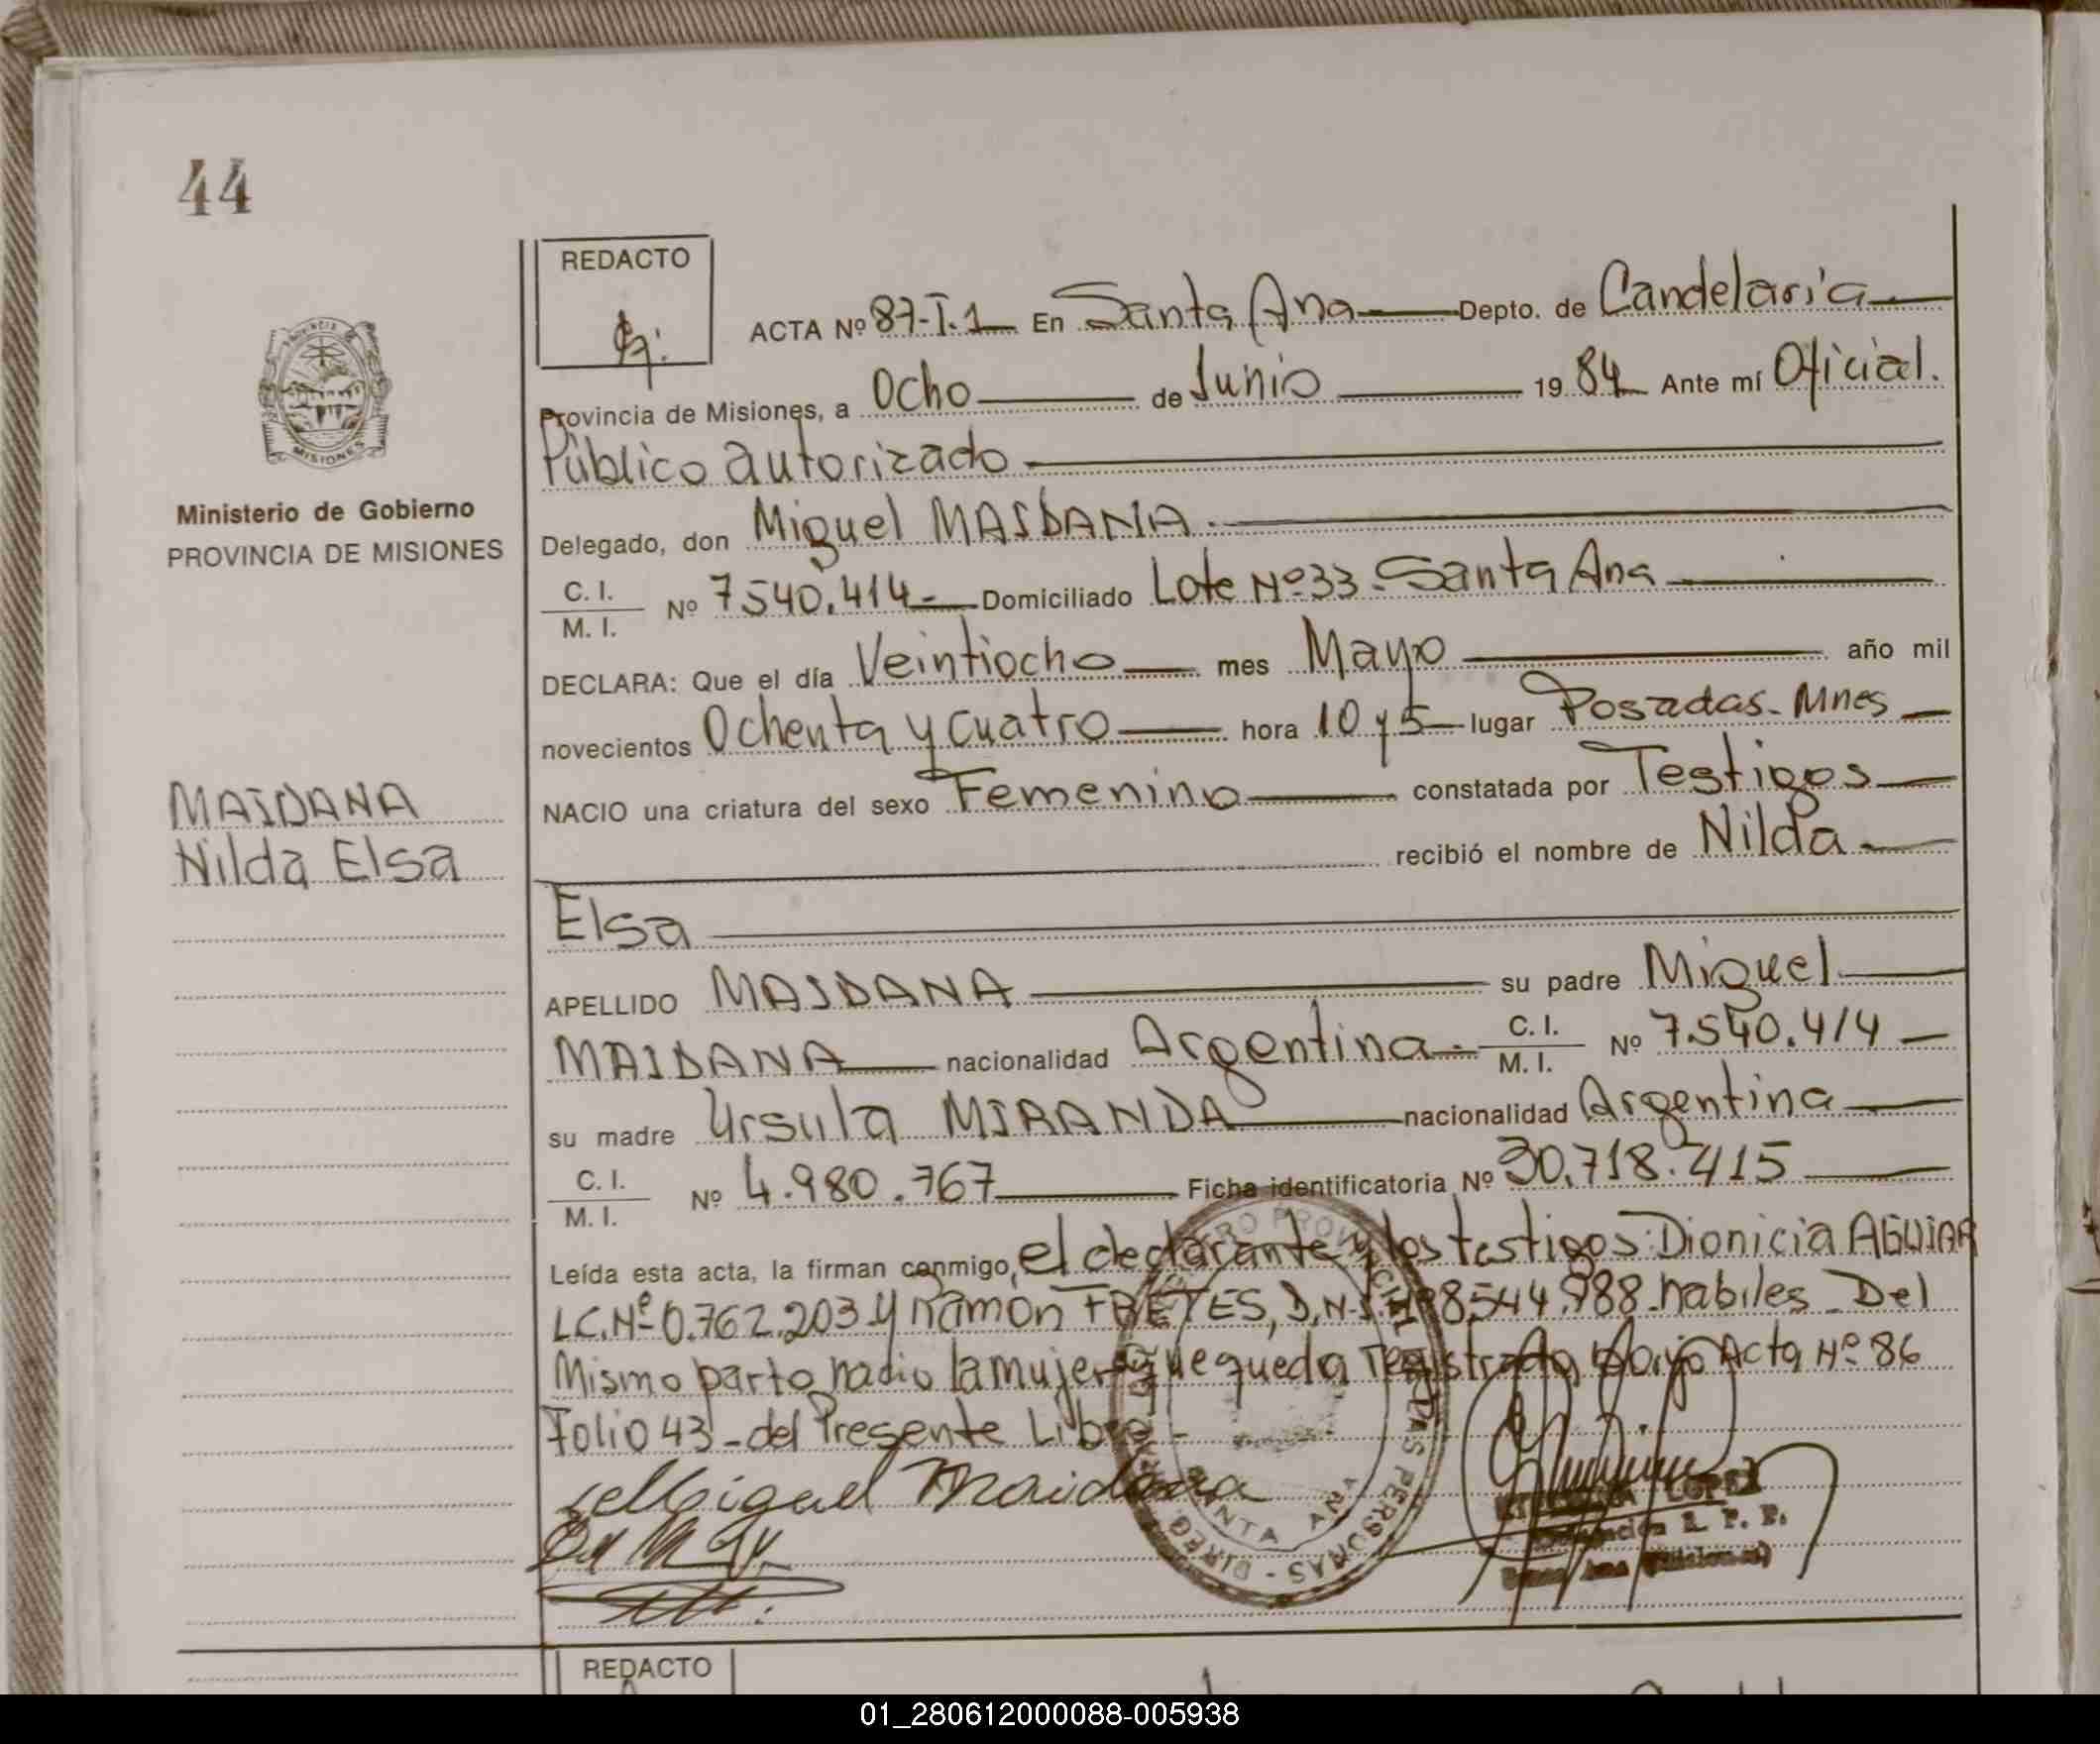 44
REDACTO
ACTA Nº 87-I.1 En Santa Ana Depto. de Candelaria
Provincia de Misiones, a Ocho de Junio 1984 Ante mí Oficial.
Público autorizado
Ministerio de Gobierno
PROVINCIA DE MISIONES
Delegado, don Miguel MAIDANA
C. I. / M. I. Nº 7540.414 - Domiciliado Lote Nº 33 - Santa Ana
DECLARA: Que el día Veintiocho mes Mayo año mil
novecientos Ochenta y Cuatro hora 10 y 5 lugar Posadas - Mnes
MAIDANA
Nilda Elsa
NACIO una criatura del sexo Femenino constatada por Testigos
recibió el nombre de Nilda
Elsa
APELLIDO MAIDANA su padre Miguel
MAIDANA nacionalidad Argentina - C. I. / M. I. Nº 7.540.414
su madre Ursula MIRANDA nacionalidad Argentina
C. I. / M. I. Nº 4.980.767 Ficha identificatoria Nº 30.718.415
Leída esta acta, la firman conmigo, el declarante y los testigos: Dionicia AGUIAR
LC. Nº 0.762.203 y Ramón FRETES, D.N.I. Nº 8.544.988 habiles - Del
Mismo parto nacio la mujer que queda registrada bajo Acta Nº 86
Folio 43 - del Presente Libro -
Miguel Maidana
LOPEZ
SANTA ANA
DAS PERSONAS - DIREC
REDACTO
01_280612000088-005938